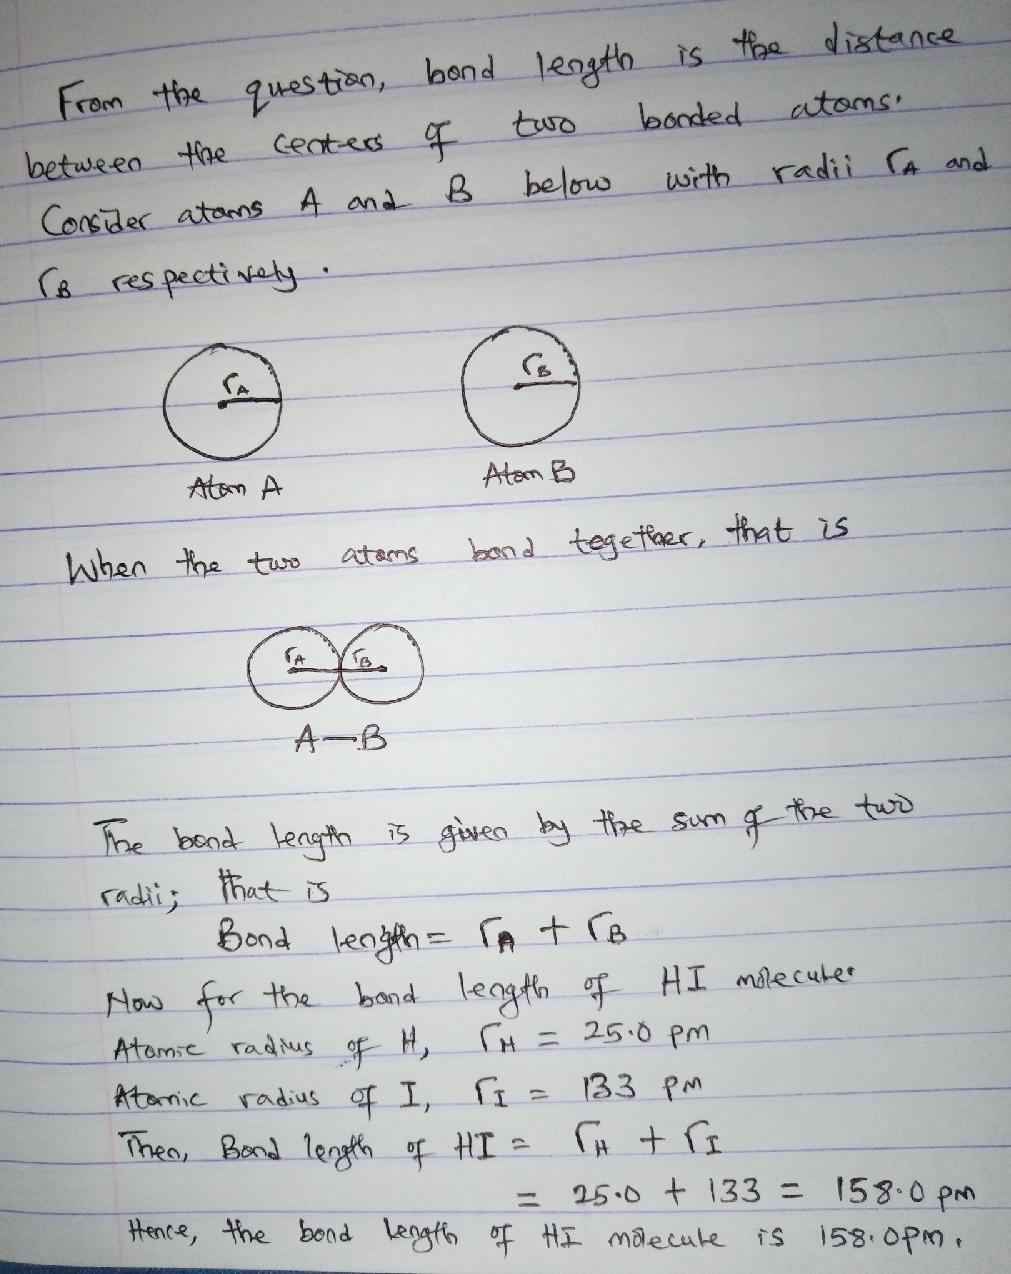 From the question, bond length is the distance
between the centers of two bonded atoms.
Consider atoms A and B below with radii rA and
rB respectively.
rA
rB
Atom A
Atom B
When the two atoms bond tegether, that is
rA rB
A—B
The bond length is given by the sum of the two
radii; that is
Bond length = rA + rB
Now for the bond length of HI molecule
Atomic radius of H, rH = 25.0 pm
Atomic radius of I, rI = 133 pm
Then, Bond length of HI = rH + rI
= 25.0 + 133 = 158.0 pm
Hence, the bond length of HI molecule is 158.0pm.